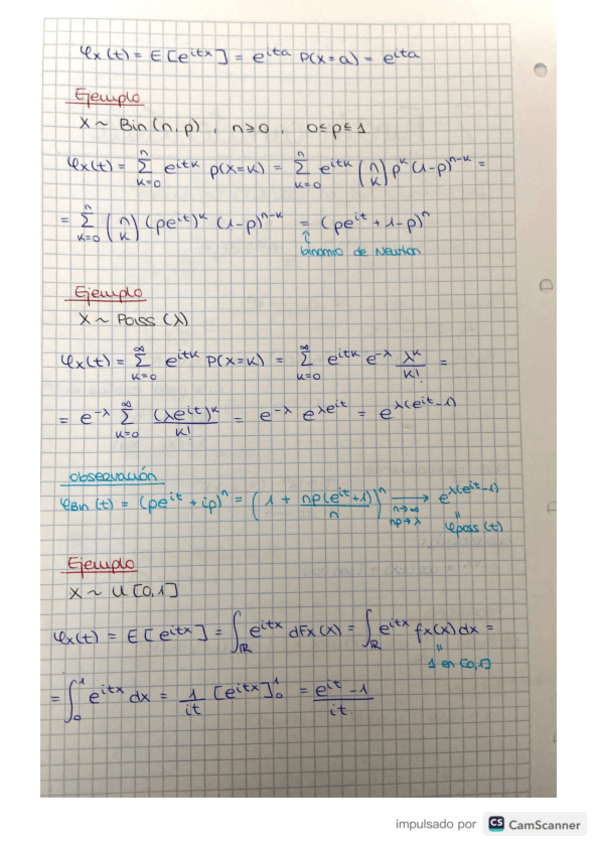 φx(t) = E[e^itx] = e^ita P(x=a) = e^ita
Ejemplo
X ~ Bin(n,p), n≥0, 0≤p≤1
φx(t) = Σ_{k=0}^{n} e^itk P(x=k) = Σ_{k=0}^{n} e^itk (n k) p^k (1-p)^{n-k} =
= Σ_{k=0}^{n} (n k) (pe^it)^k (1-p)^{n-k} = (pe^it + 1-p)^n
↑
binomio de Newton
Ejemplo
X ~ Poiss(λ)
φx(t) = Σ_{k=0}^{∞} e^itk P(x=k) = Σ_{k=0}^{∞} e^itk e^-λ λ^k/k! =
= e^-λ Σ_{k=0}^{∞} (λe^it)^k/k! = e^-λ e^{λe^it} = e^{λ(e^it-1)}
observación
φBin(t) = (pe^it + ip)^n = (1 + np(e^it+1)/n)^n → e^{λ(e^it-1)}
n→∞
np→λ
"
φpoiss(t)
Ejemplo
X ~ U[0,1]
φx(t) = E[e^itx] = ∫_ℝ e^itx dFx(x) = ∫_ℝ e^itx fx(x)dx =
"
1 en [0,1]
= ∫_0^1 e^itx dx = 1/it [e^itx]_0^1 = e^it -1/it
impulsado por CS CamScanner